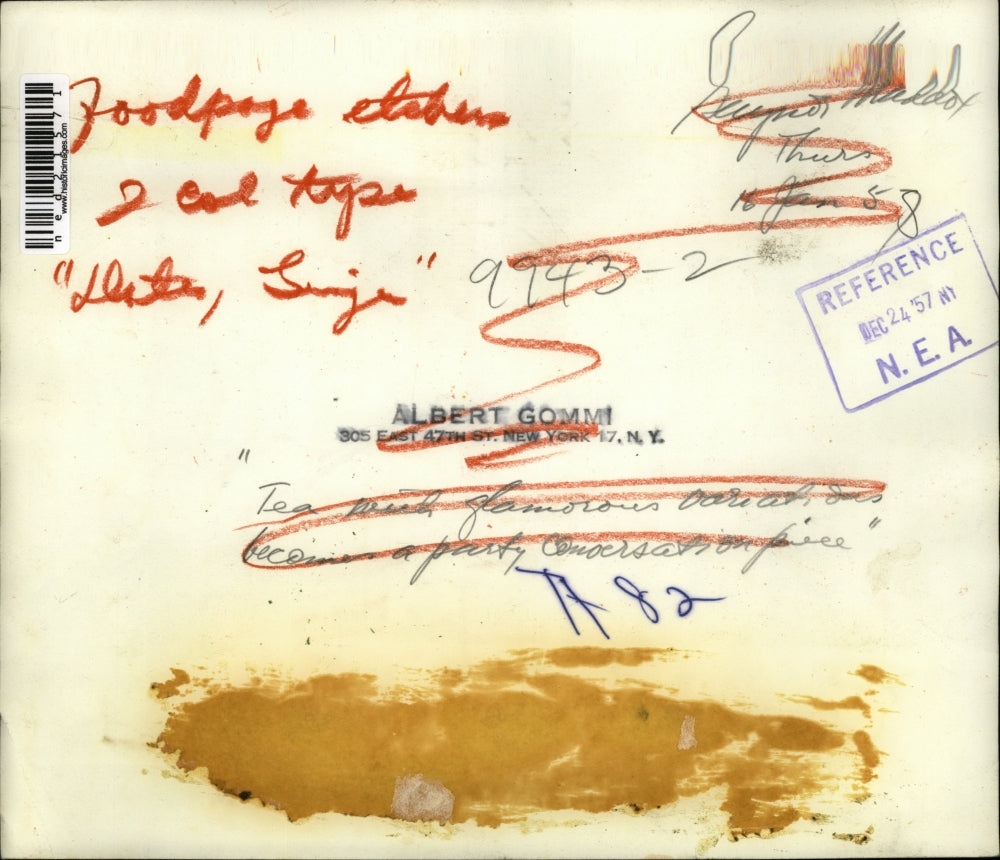 Foodpage etchers
2 col type
"Dates,
Gaynor Maddox
Thurs
16 Jan 58
9943-2
REFERENCE
DEC 24 '57 NY
N. E. A.
ALBERT GOMMI
305 EAST 47TH ST. NEW YORK 17, N. Y.
"Tea with glamorous variations
becomes a party conversation piece"
82
www.historicimages.com
ned21571